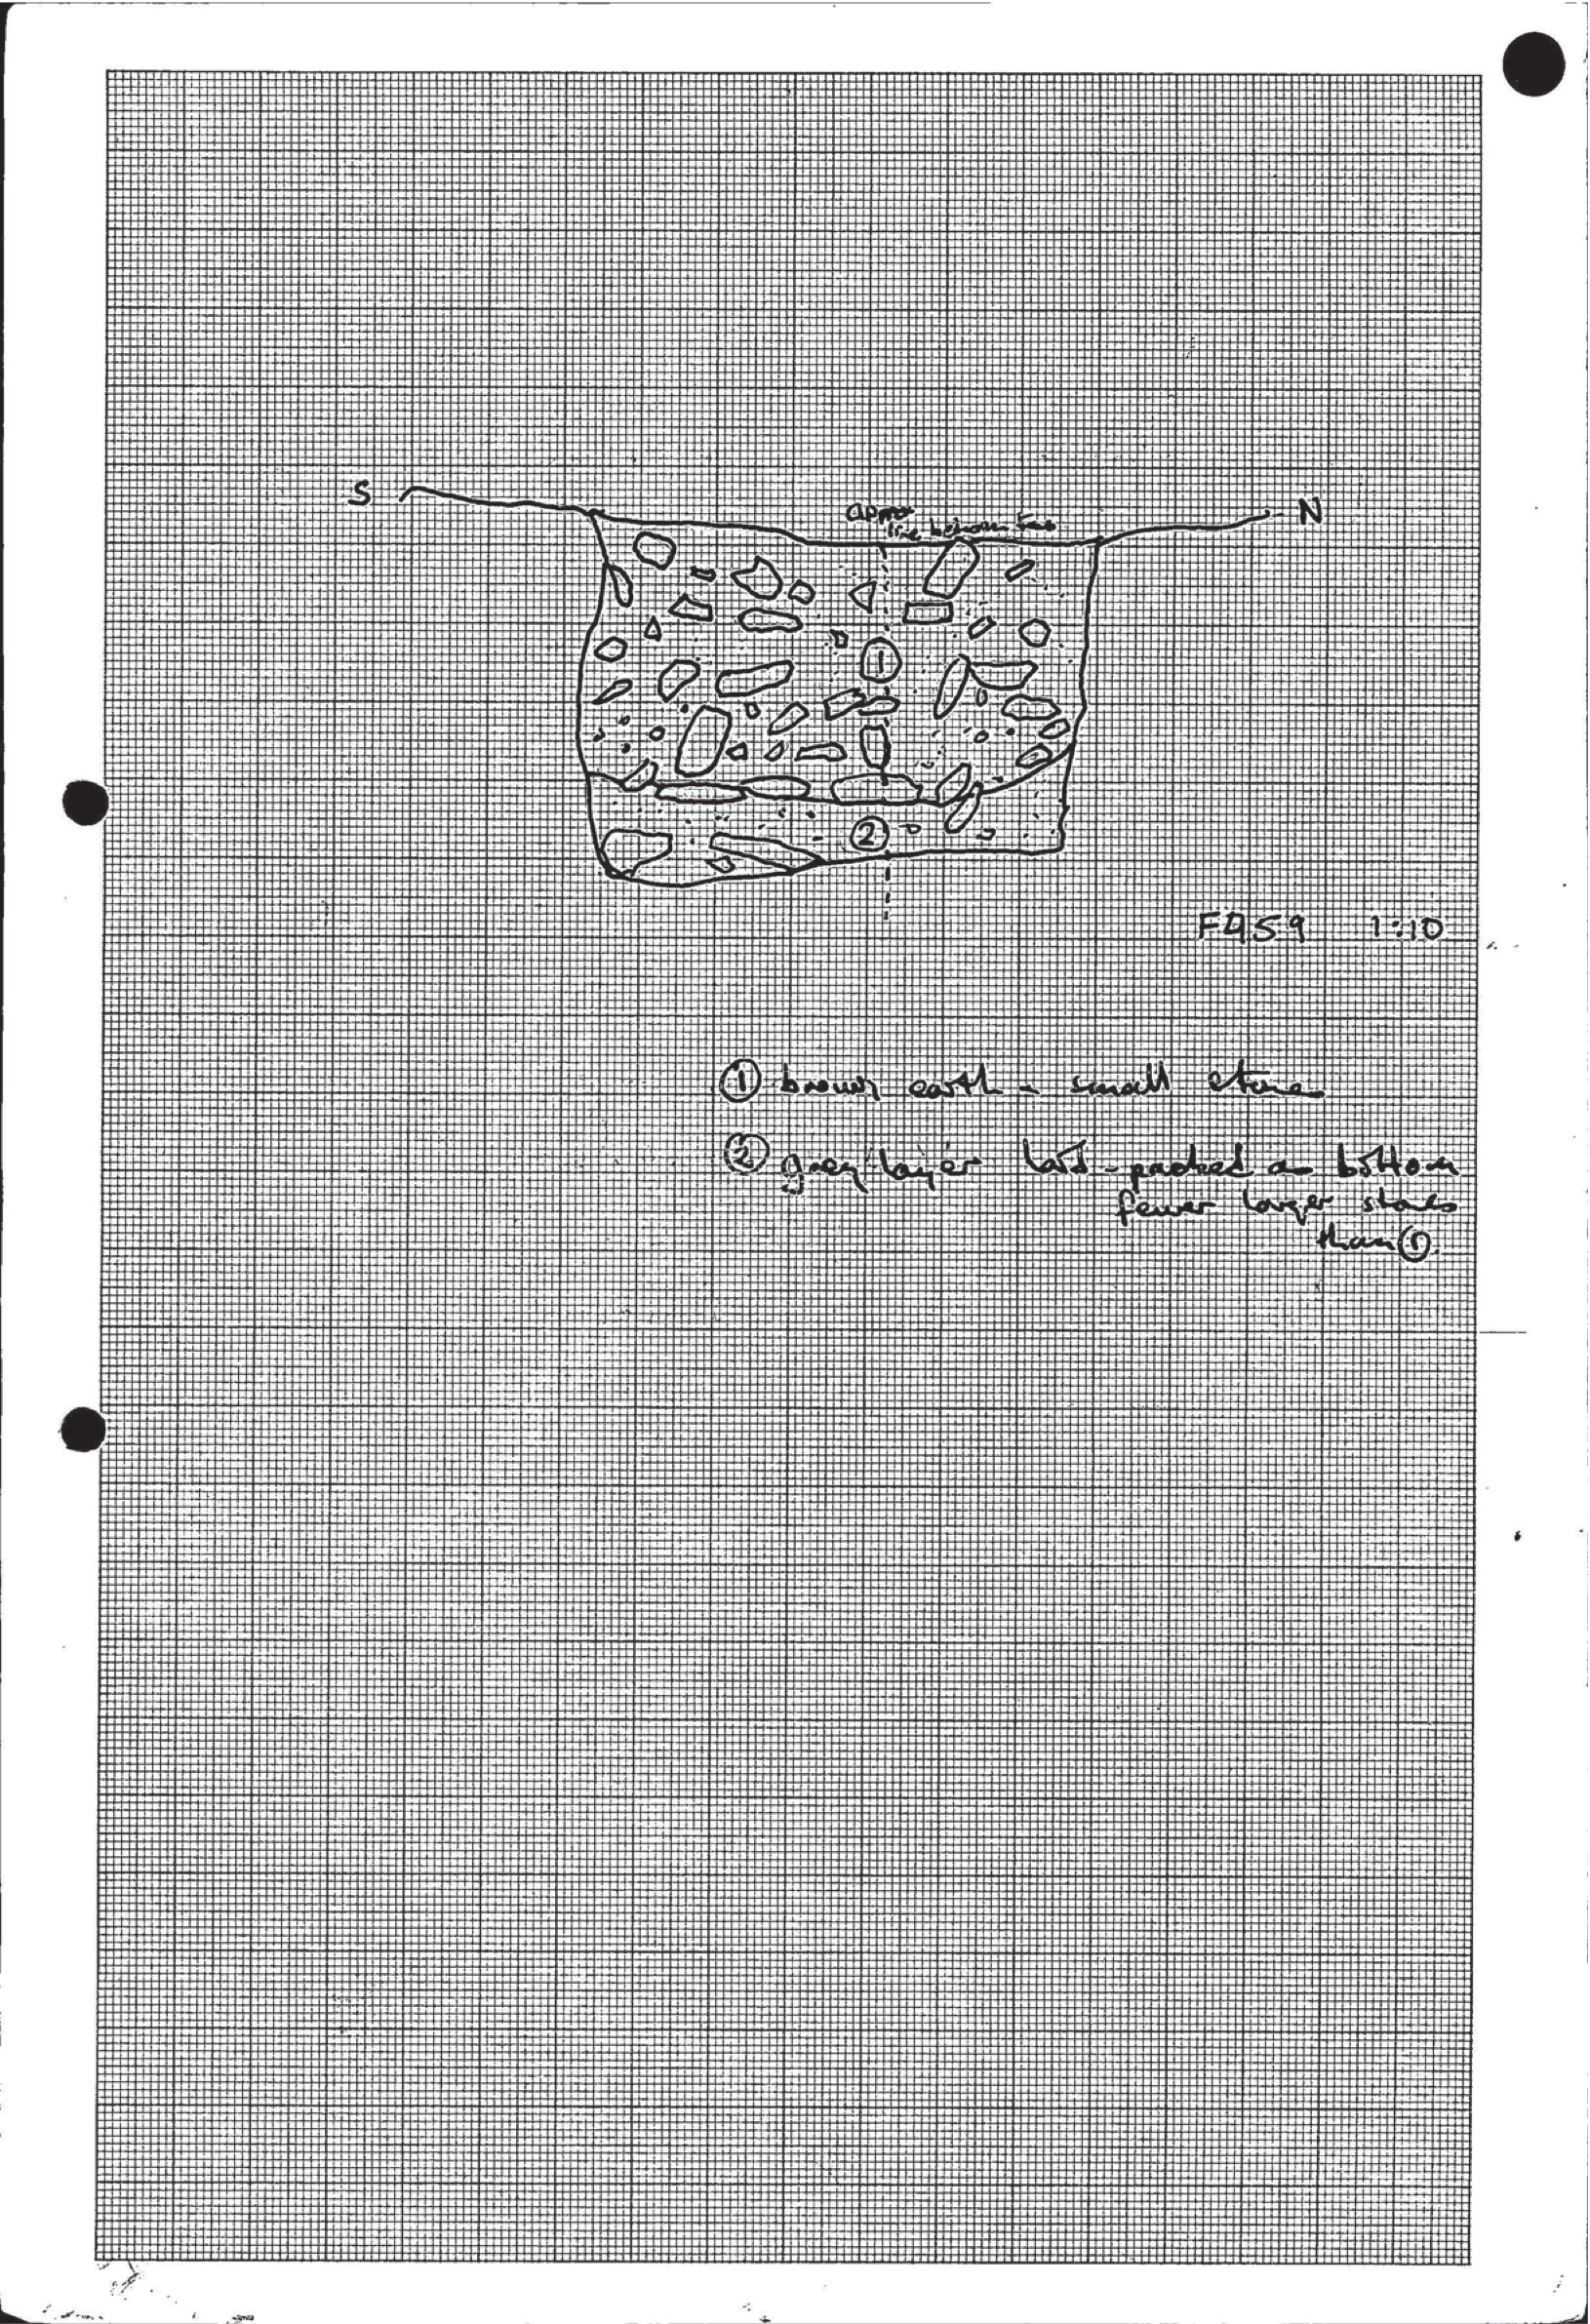 S
N
approx
line between two
1
2
F459 1:10
① brown earth - small stones
② grey layer hard-packed on bottom
fewer larger stones
than ①.